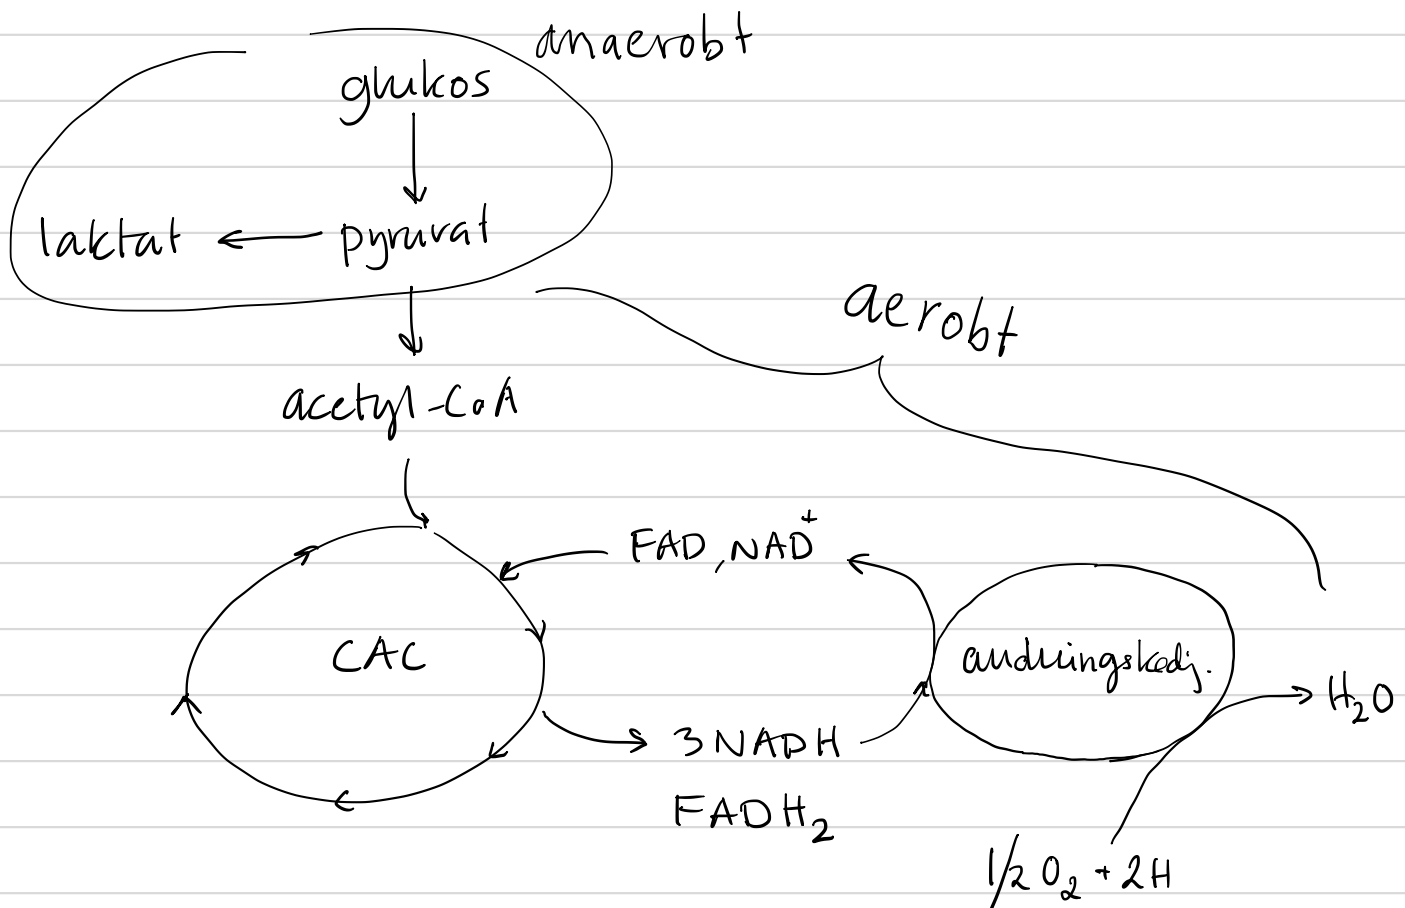 anaerobt
glukos
laktat ← pyruvat
aerobt
acetyl-CoA
FAD, NAD⁺
CAC
andningskedj.
H₂O
3 NADH
FADH₂
1/2 O₂ + 2H